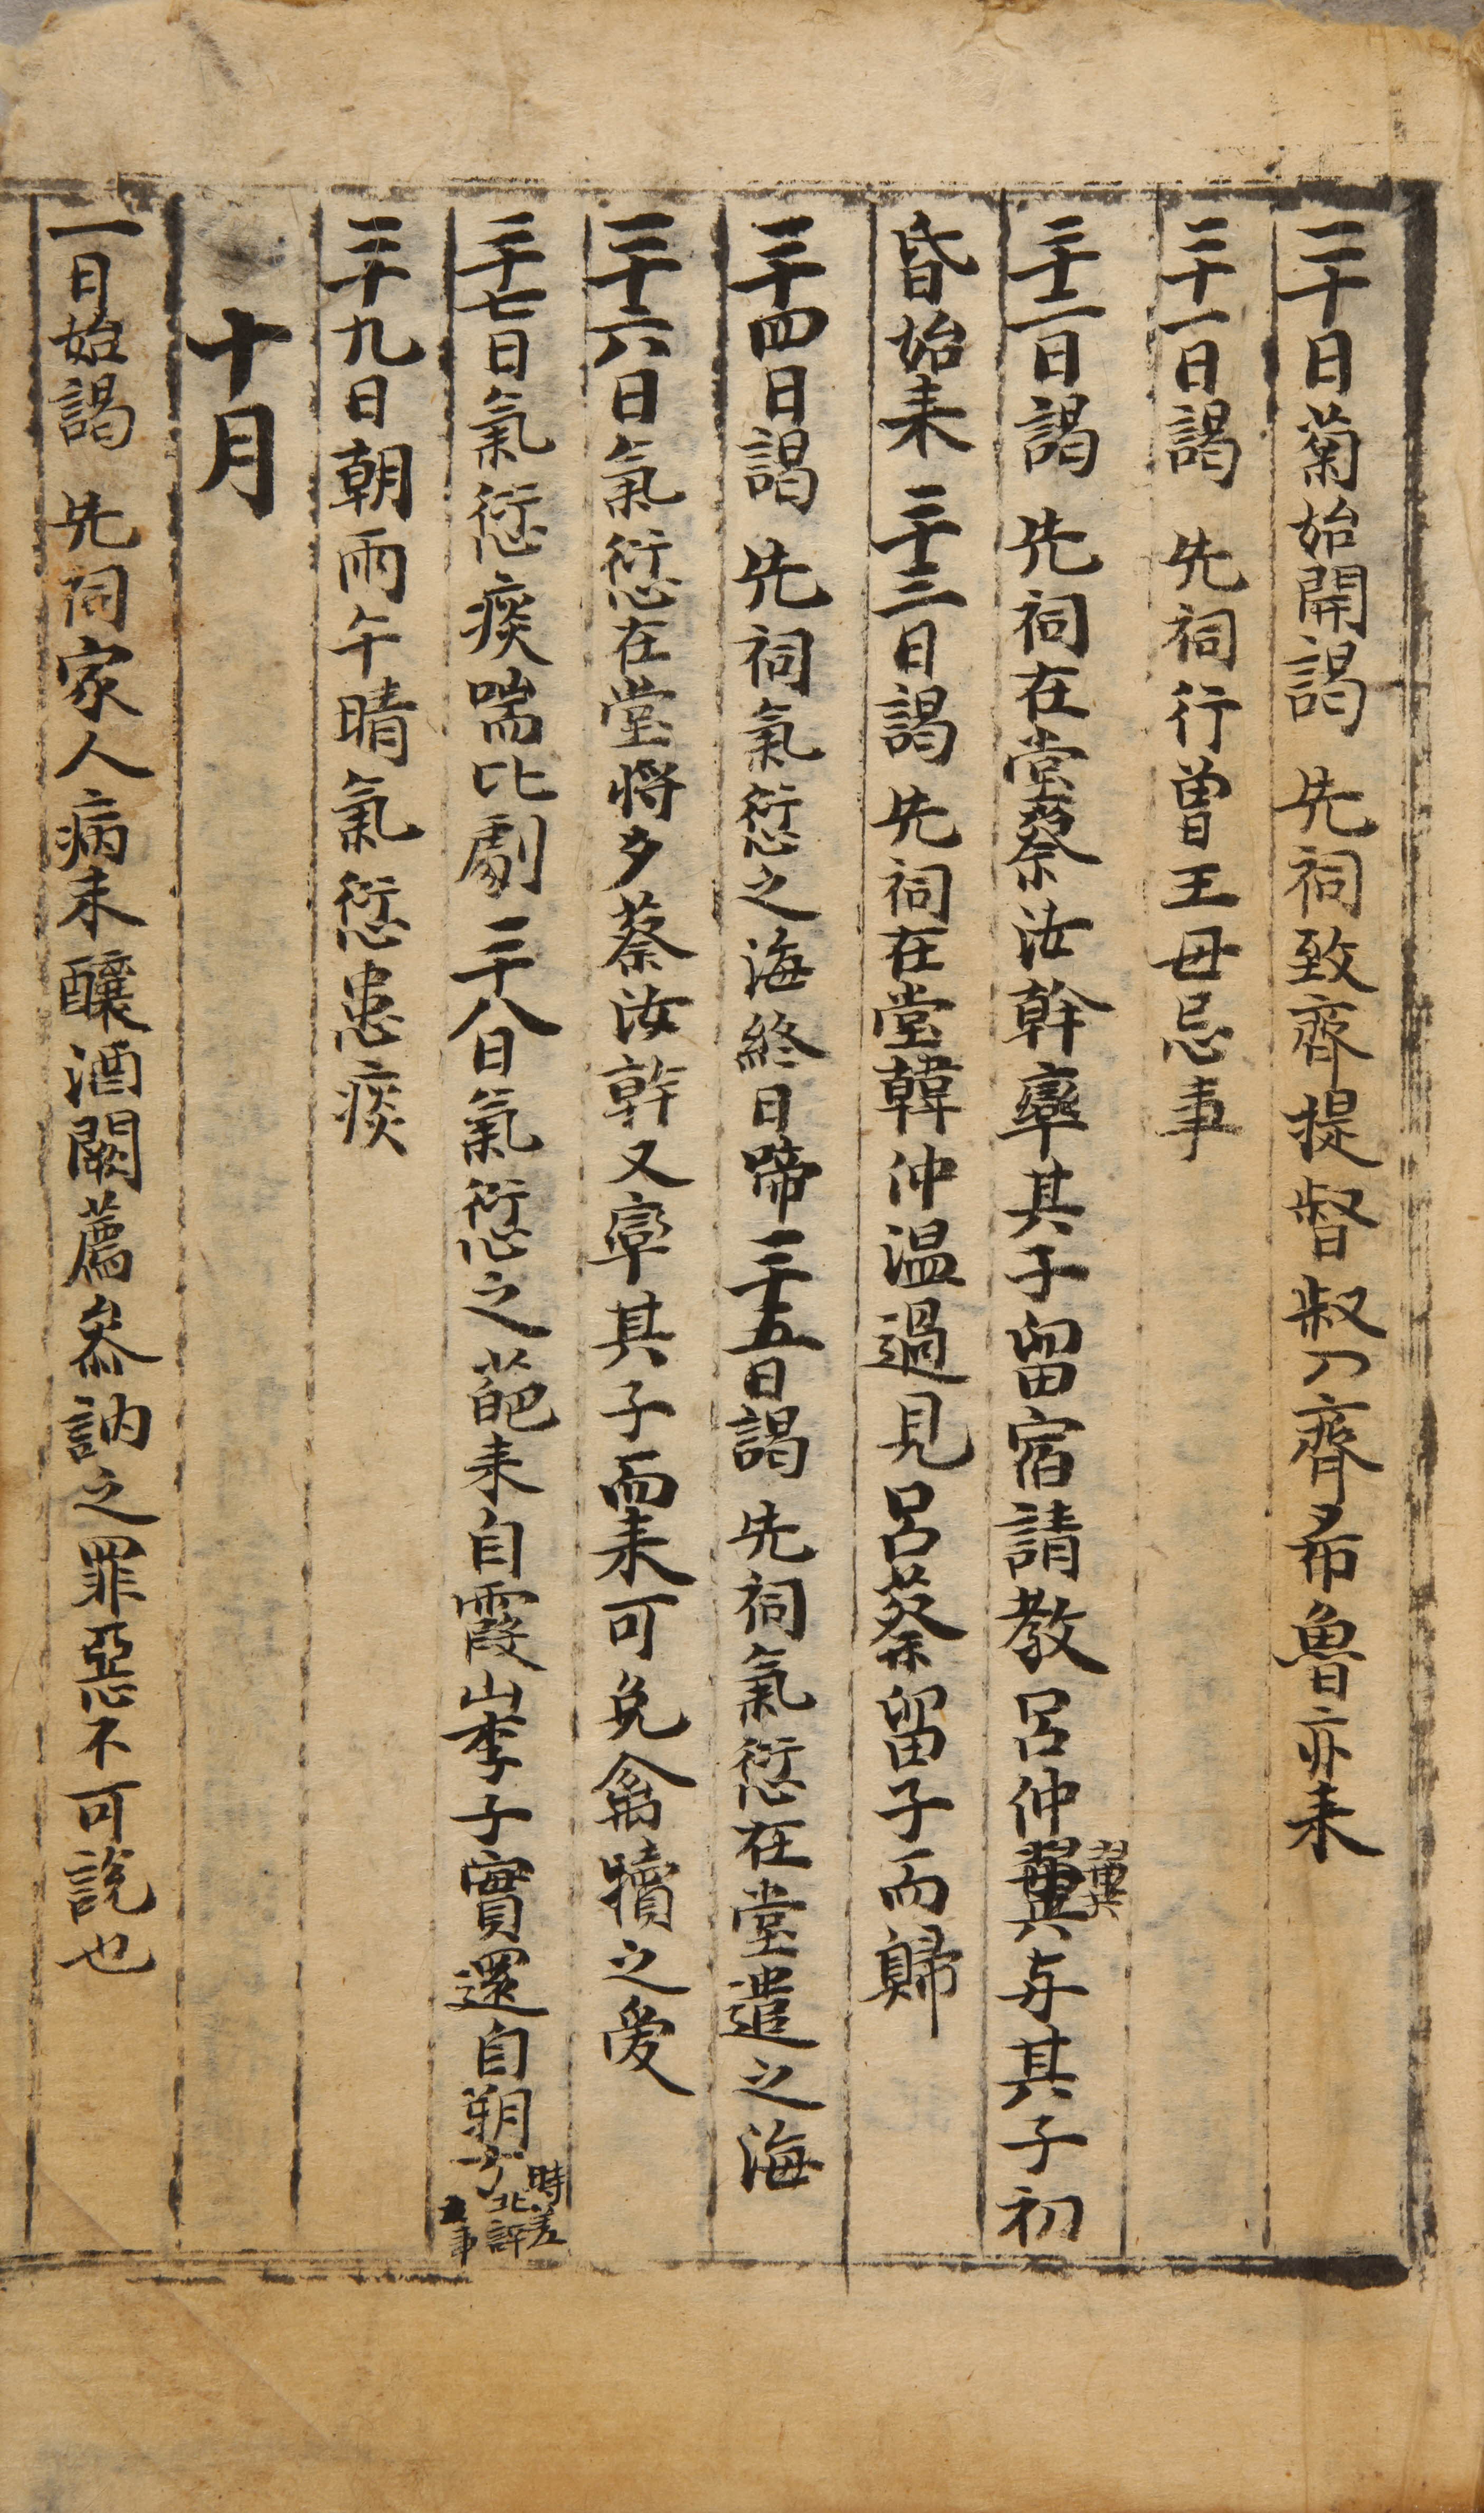 二十日菊始開謁 先祠致齊提督叔刀齊希魯亦来
二十一日謁 先祠行曽王母忌事
二十二日謁 先祠在堂蔡汝幹率其子留宿請教呂仲冀与其子初
昏始来 二十三日謁 先祠在堂韓仲温過見呂蔡留子而歸
二十四日謁 先祠氣愆之海終日啼二十五日謁 先祠氣愆在堂遣之海
二十六日氣愆在堂將夕蔡汝幹又率其子而来可免禽犢之愛
二十七日氣愆痰喘比劇 二十八日氣愆之葩来自霞山李子實還自朔方時差北評事
二十九日朝雨午晴氣愆患痰
十月
一日始謁 先祠家人病未釀酒闕薦參訥之罪惡不可說也